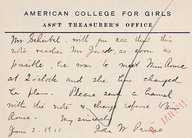 AMERICAN COLLEGE FOR GIRLS
ASS'T TREASURER'S OFFICE
Mrs. Schabel, will you see that this
note reaches Mr. as soon as
possible, he was to meet Miss Rome
at 2 o'clock and she has changed
her plan. Please send a hamal
with the note & charge expense Miss
Rome. Very sincerely
Jan 2. 1911 Ida W. Prime
JAN 1911